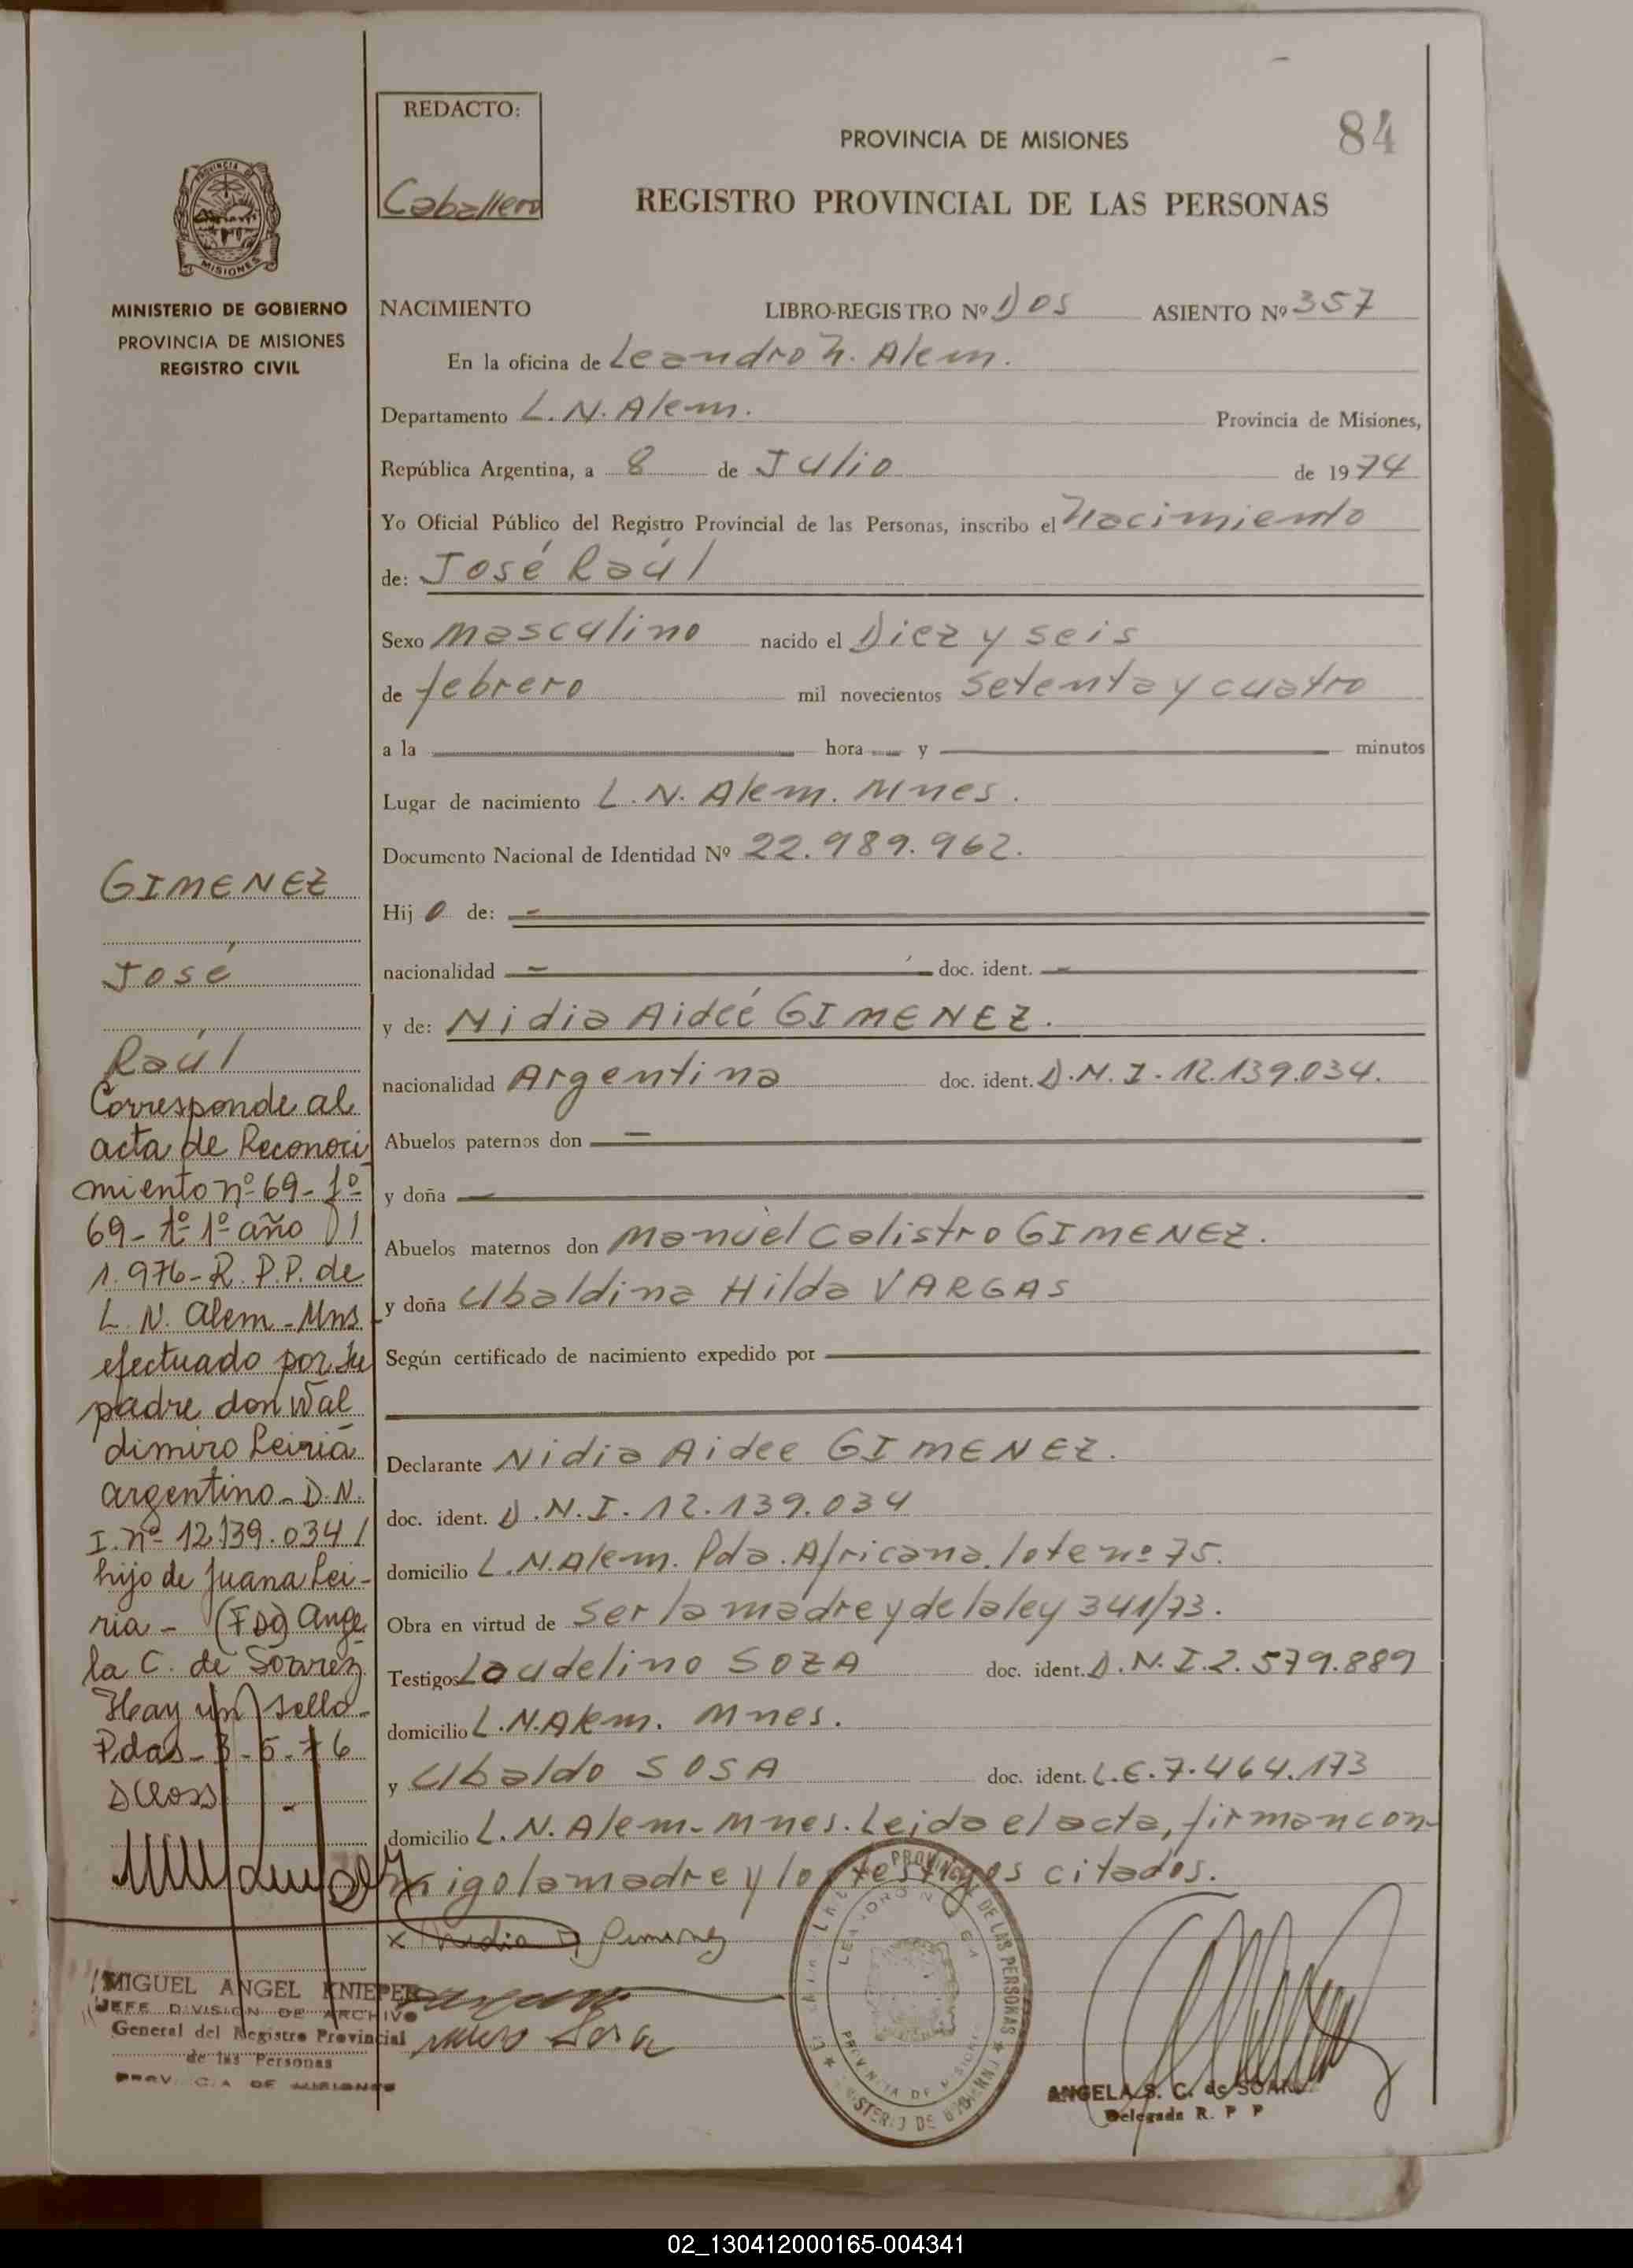 REDACTO:
Caballero
84
PROVINCIA DE MISIONES
REGISTRO PROVINCIAL DE LAS PERSONAS
MISIONES
MINISTERIO DE GOBIERNO
PROVINCIA DE MISIONES
REGISTRO CIVIL
NACIMIENTO LIBRO-REGISTRO Nº Dos ASIENTO Nº 357
En la oficina de Leandro N. Alem.
Departamento L. N. Alem. Provincia de Misiones,
República Argentina, a 8 de Julio de 1974
Yo Oficial Público del Registro Provincial de las Personas, inscribo el Nacimiento
de: José Raúl
Sexo masculino nacido el Diez y seis
de febrero mil novecientos setenta y cuatro
a la hora y minutos
Lugar de nacimiento L. N. Alem. Mnes.
Documento Nacional de Identidad Nº 22.989.962.
Hijo de: -
nacionalidad - doc. ident. -
y de: Nidia Aideé GIMENEZ.
nacionalidad Argentina doc. ident. D.N.I. 12.139.034.
Abuelos paternos don -
y doña -
Abuelos maternos don Manuel Calistro GIMENEZ.
y doña Ubaldina Hilda VARGAS
Según certificado de nacimiento expedido por
Declarante Nidia Aidee GIMENEZ.
doc. ident. D.N.I. 12.139.034
domicilio L.N.Alem. Pda. Africana, lote nº 75.
Obra en virtud de ser la madre y de la ley 341/73.
Testigos Laudelino SOZA doc. ident. D.N.I. 2.579.889
domicilio L.N.Alem. Mnes.
y Ubaldo SOSA doc. ident. L.E. 7.464.173
domicilio L.N. Alem-Mnes. Leida el acta, firman con-
migo la madre y los testigos citados.
GIMENEZ
José
Raúl
Corresponde al
acta de Reconoci
miento nº 69- fº
69- tº 1º año
1.976- R. P.P. de
L. N. Alem - Mns
efectuado por su
padre don Wal
dimiro Leiria
argentino - D.N.
I. nº 12.139.034
hijo de Juana Lei-
ria - (FDO) Ange
la C. de Soarez
Hay un sello-
Pdas- 3-5-76
DCloss
x Nidia Gimenez
Sosa
MIGUEL ANGEL KNIEPER
JEFE DIVISION DE ARCHIVO
General del Registro Provincial
de las Personas
PROVINCIA DE MISIONES
PROVINCIAL DE LAS PERSONAS
PROVINCIA DE MISIONES
MINISTERIO DE GOBIERNO
ANGELA S. C. de SOAREZ
Delegada R. P P
02_130412000165-004341